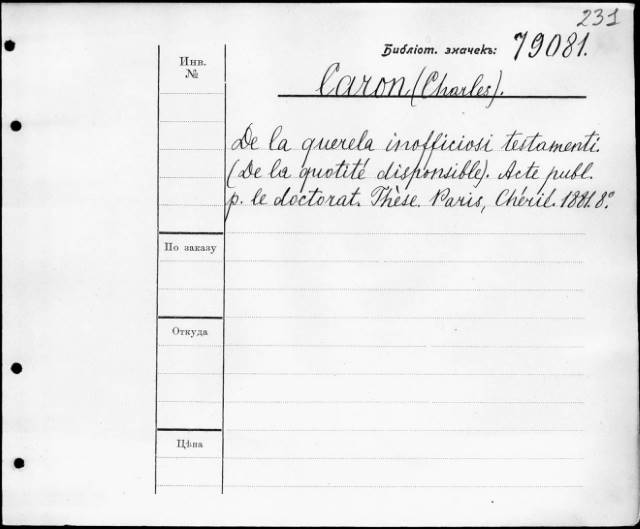 231
Библіот. значекъ: 79081.
Инв.
№
Caron (Charles).
De la querela inofficiosi testamenti.
(De la quotité disponsible). Acte publ.
p. le doctorat. Thèse. Paris, Chéril. 1881. 8°.
По заказу
Откуда
Цѣна